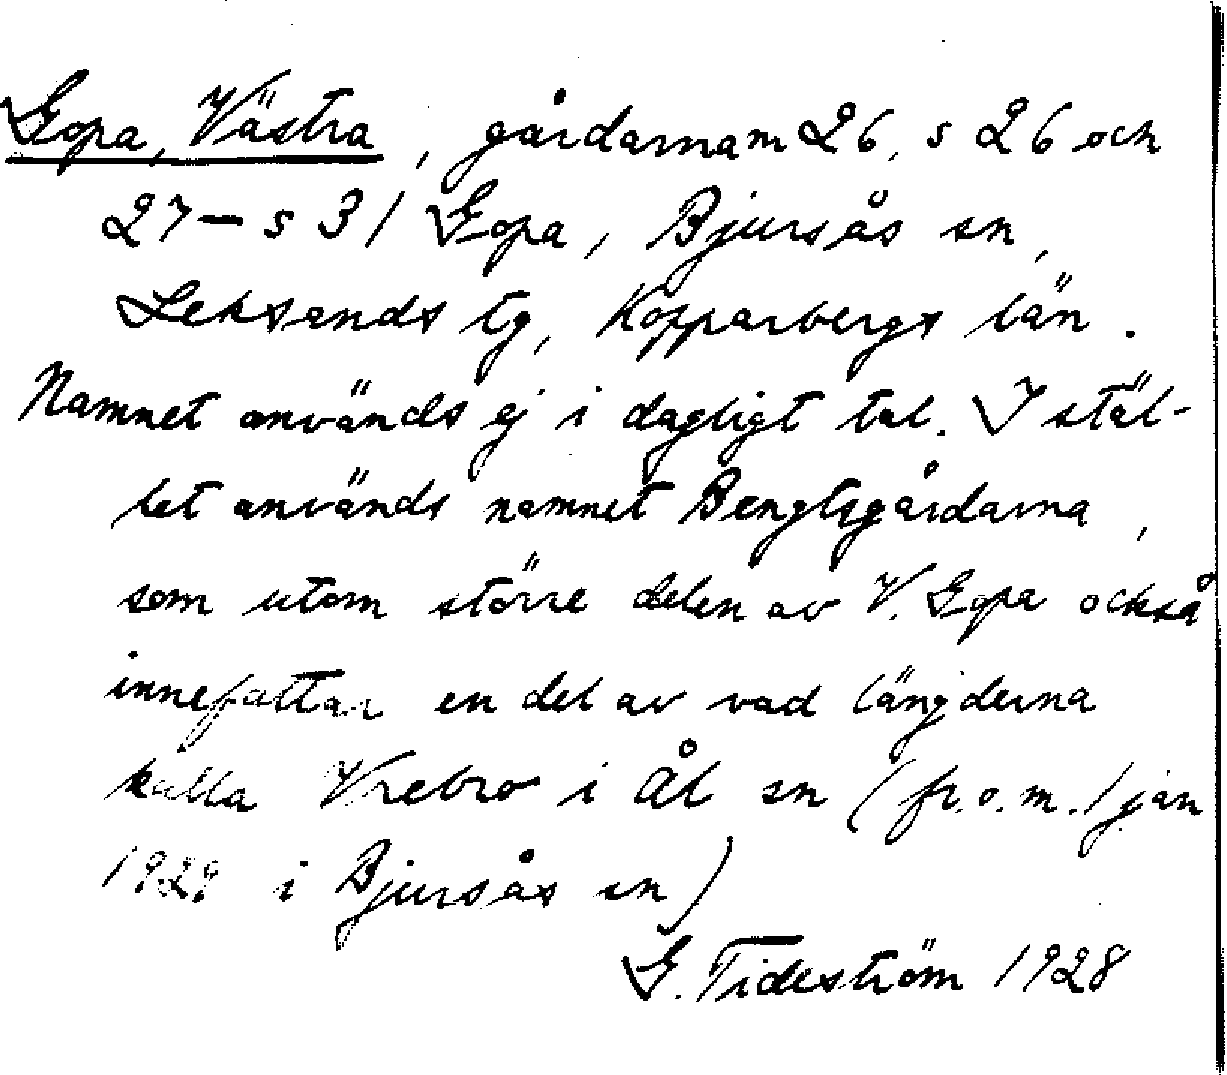 Gopa, Västra, gårdarna m 26, s 26 och
27 – s 31 Gopa, Bjursås sn,
Leksands tg, Kopparbergs län.
Namnet används ej i dagligt tal. I stäl-
let används namnet Bengtsgårdarna,
som utom större delen av V. Gopa också
innefattar en del av vad längderna
kalla Vrebro i Ål sn (fr.o.m. 1 jan
1929 i Bjursås sn)
G. Tideström 1928